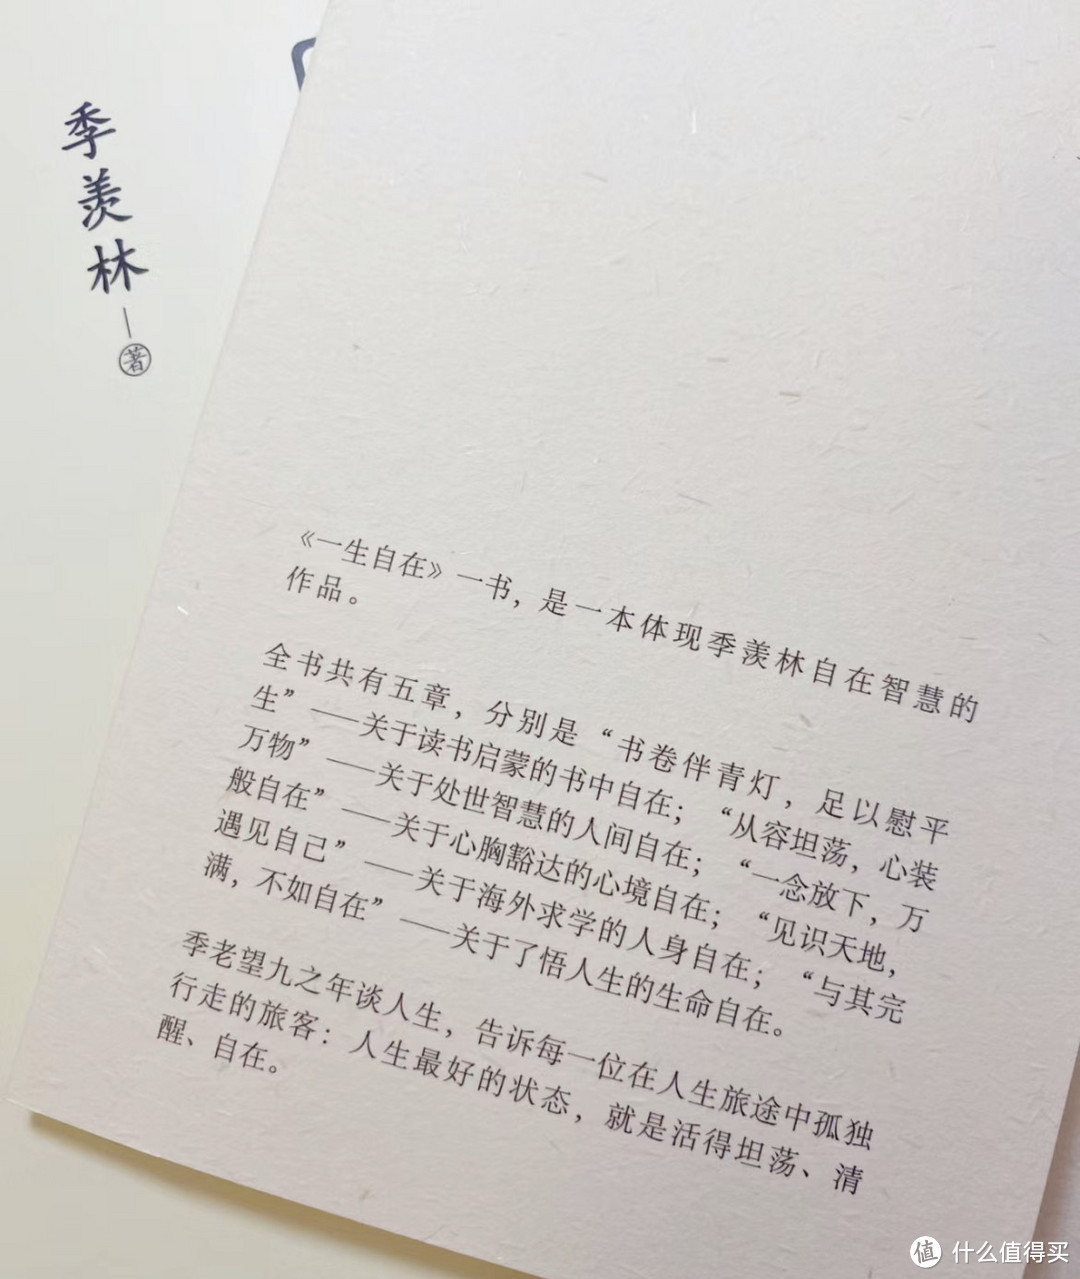 季羡林
著
《一生自在》一书，是一本体现季羡林自在智慧的
作品。
全书共有五章，分别是“书卷伴青灯，足以慰平
生”——关于读书启蒙的书中自在；“从容坦荡，心装
万物”——关于处世智慧的人间自在；“一念放下，万
般自在”——关于心胸豁达的心境自在；“见识天地，
遇见自己”——关于海外求学的人身自在；“与其完
满，不如自在”——关于了悟人生的生命自在。
季老望九之年谈人生，告诉每一位在人生旅途中孤独
行走的旅客：人生最好的状态，就是活得坦荡、清
醒、自在。
值 什么值得买